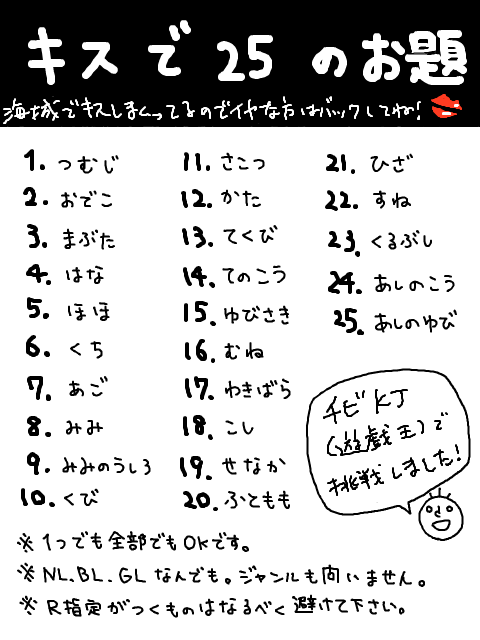 キスで25のお題
海城でキスしまくってるのでイヤな方はバックしてね!
1. つむじ
2. おでこ
3. まぶた
4. はな
5. ほほ
6. くち
7. あご
8. みみ
9. みみのうしろ
10. くび
11. さこつ
12. かた
13. てくび
14. てのこう
15. ゆびさき
16. むね
17. わきばら
18. こし
19. せなか
20. ふともも
21. ひざ
22. すね
23. くるぶし
24. あしのこう
25. あしのゆび
チビKJ
(遊戯王)で
挑戦しました!
※1つでも全部でもOKです。
※NL.BL.GLなんでも。ジャンルも問いません。
※R指定がつくものはなるべく避けて下さい。